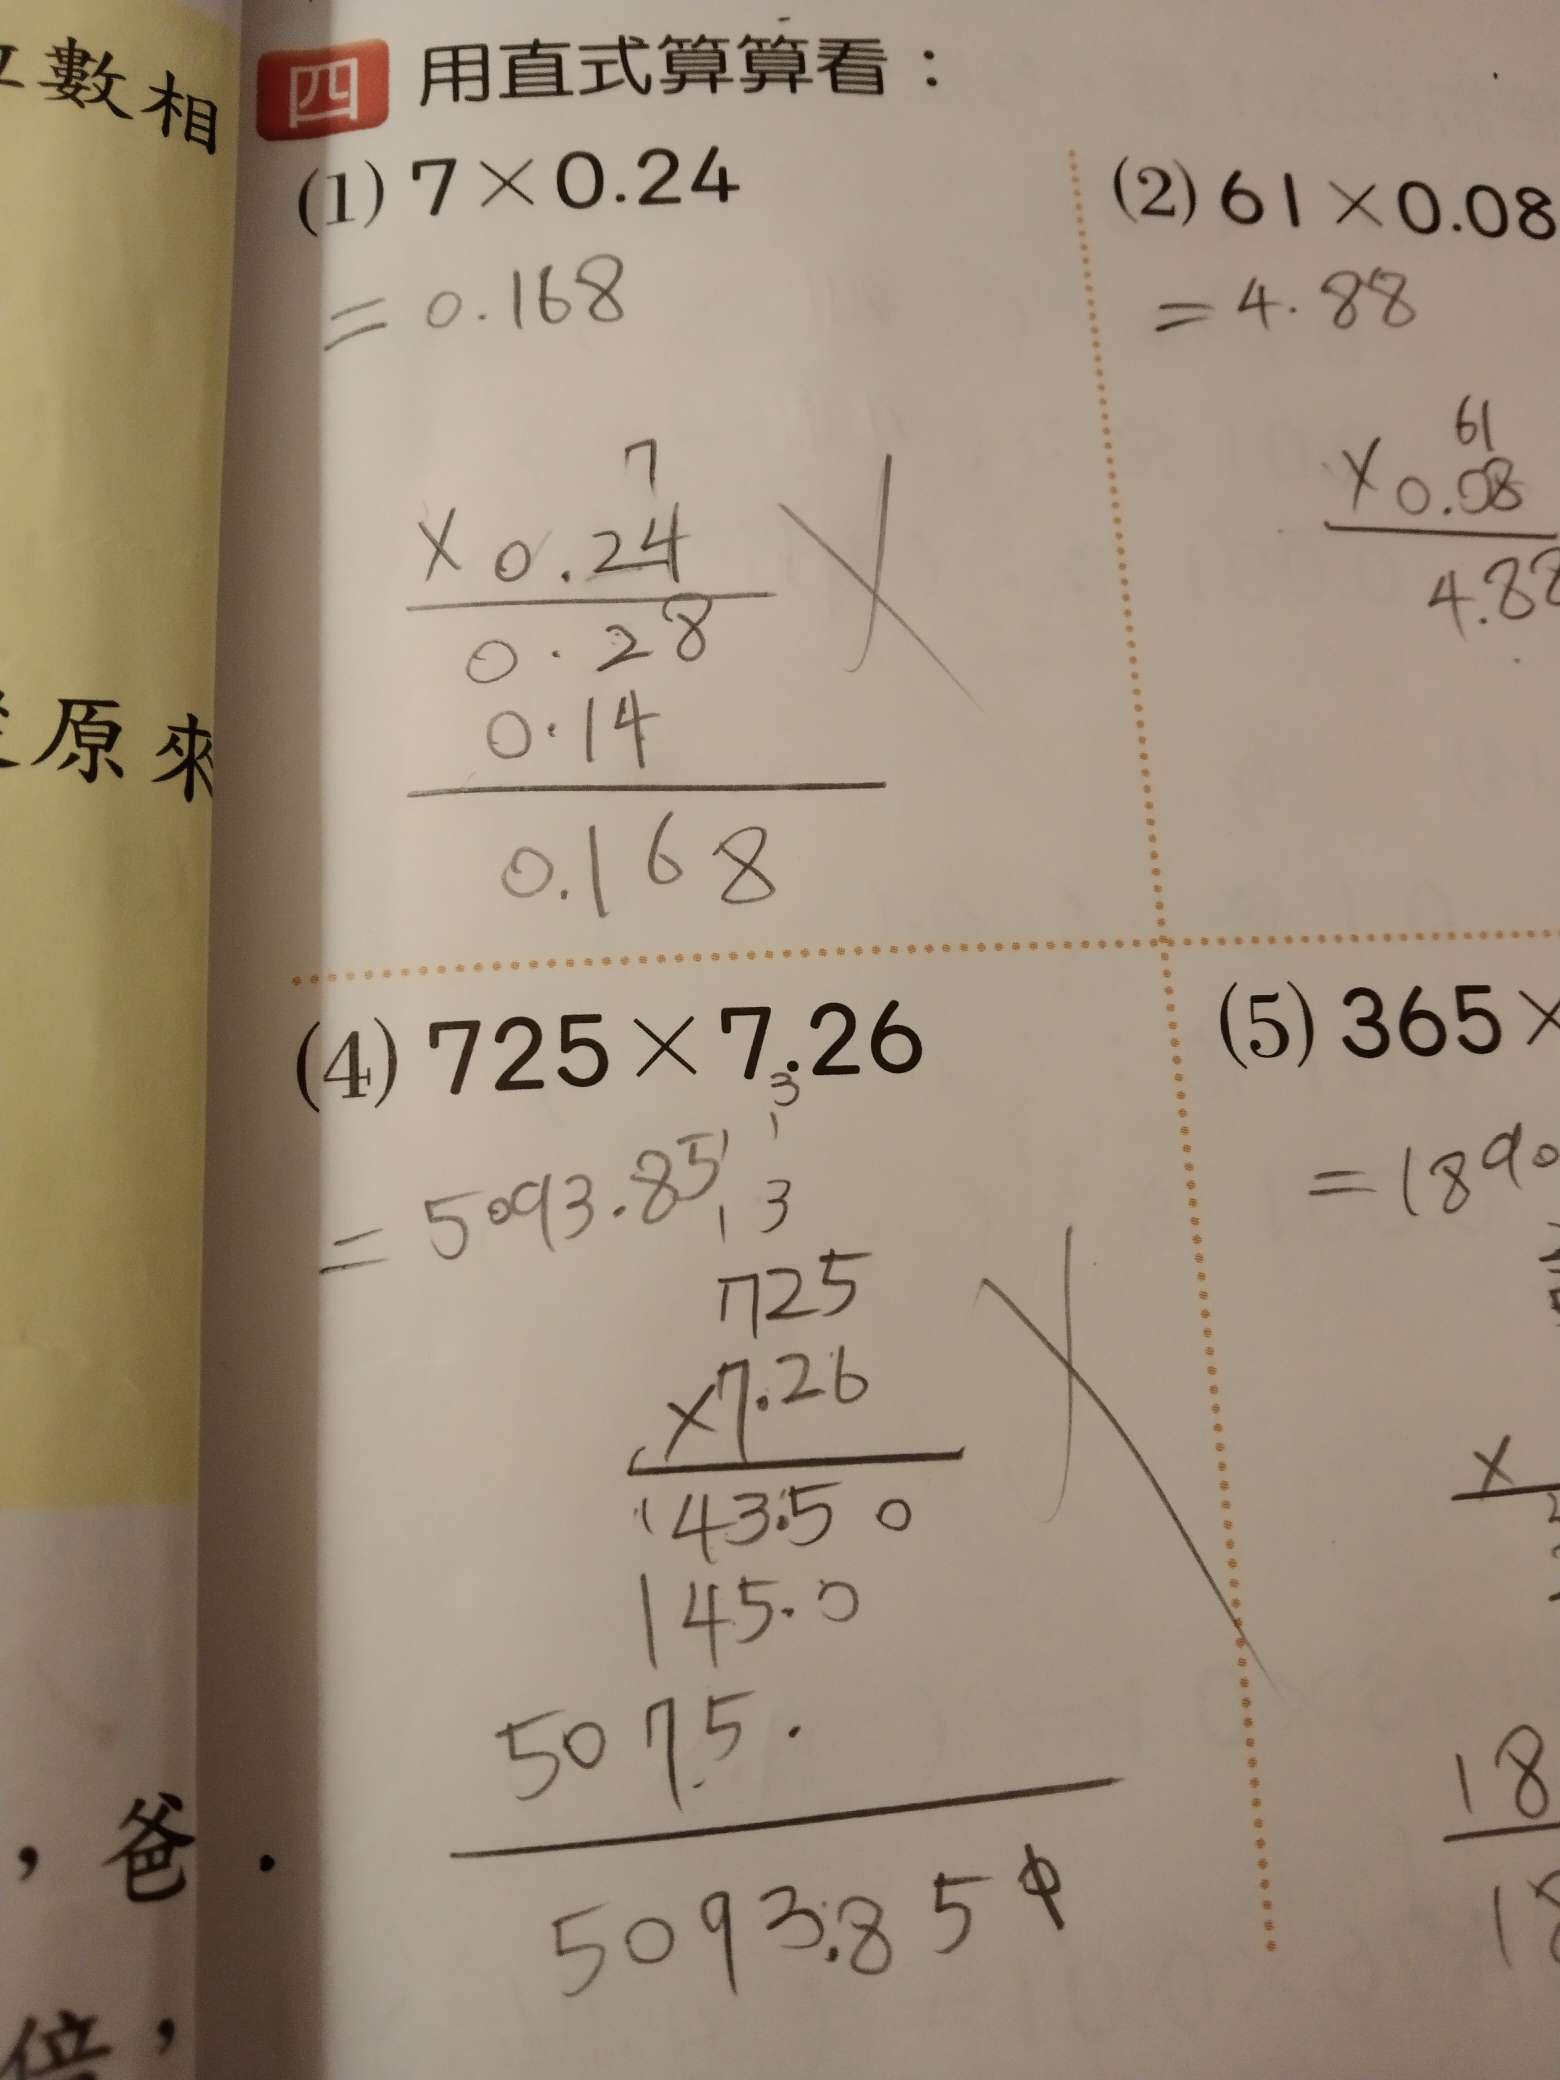 數相
原來
，爸
倍，
四 用直式算算看：
(1) 7×0.24
= 0.168
7
× 0.24
0.28
0.14
0.168
(2) 61×0.08
= 4.88
61
× 0.08
4.88
(4) 725×7.26
= 5093.85
3
1 1
1 3
725
×7.26
143.50
145.0
5075.
5093.850
(5) 365×
= 1890
×
18
18